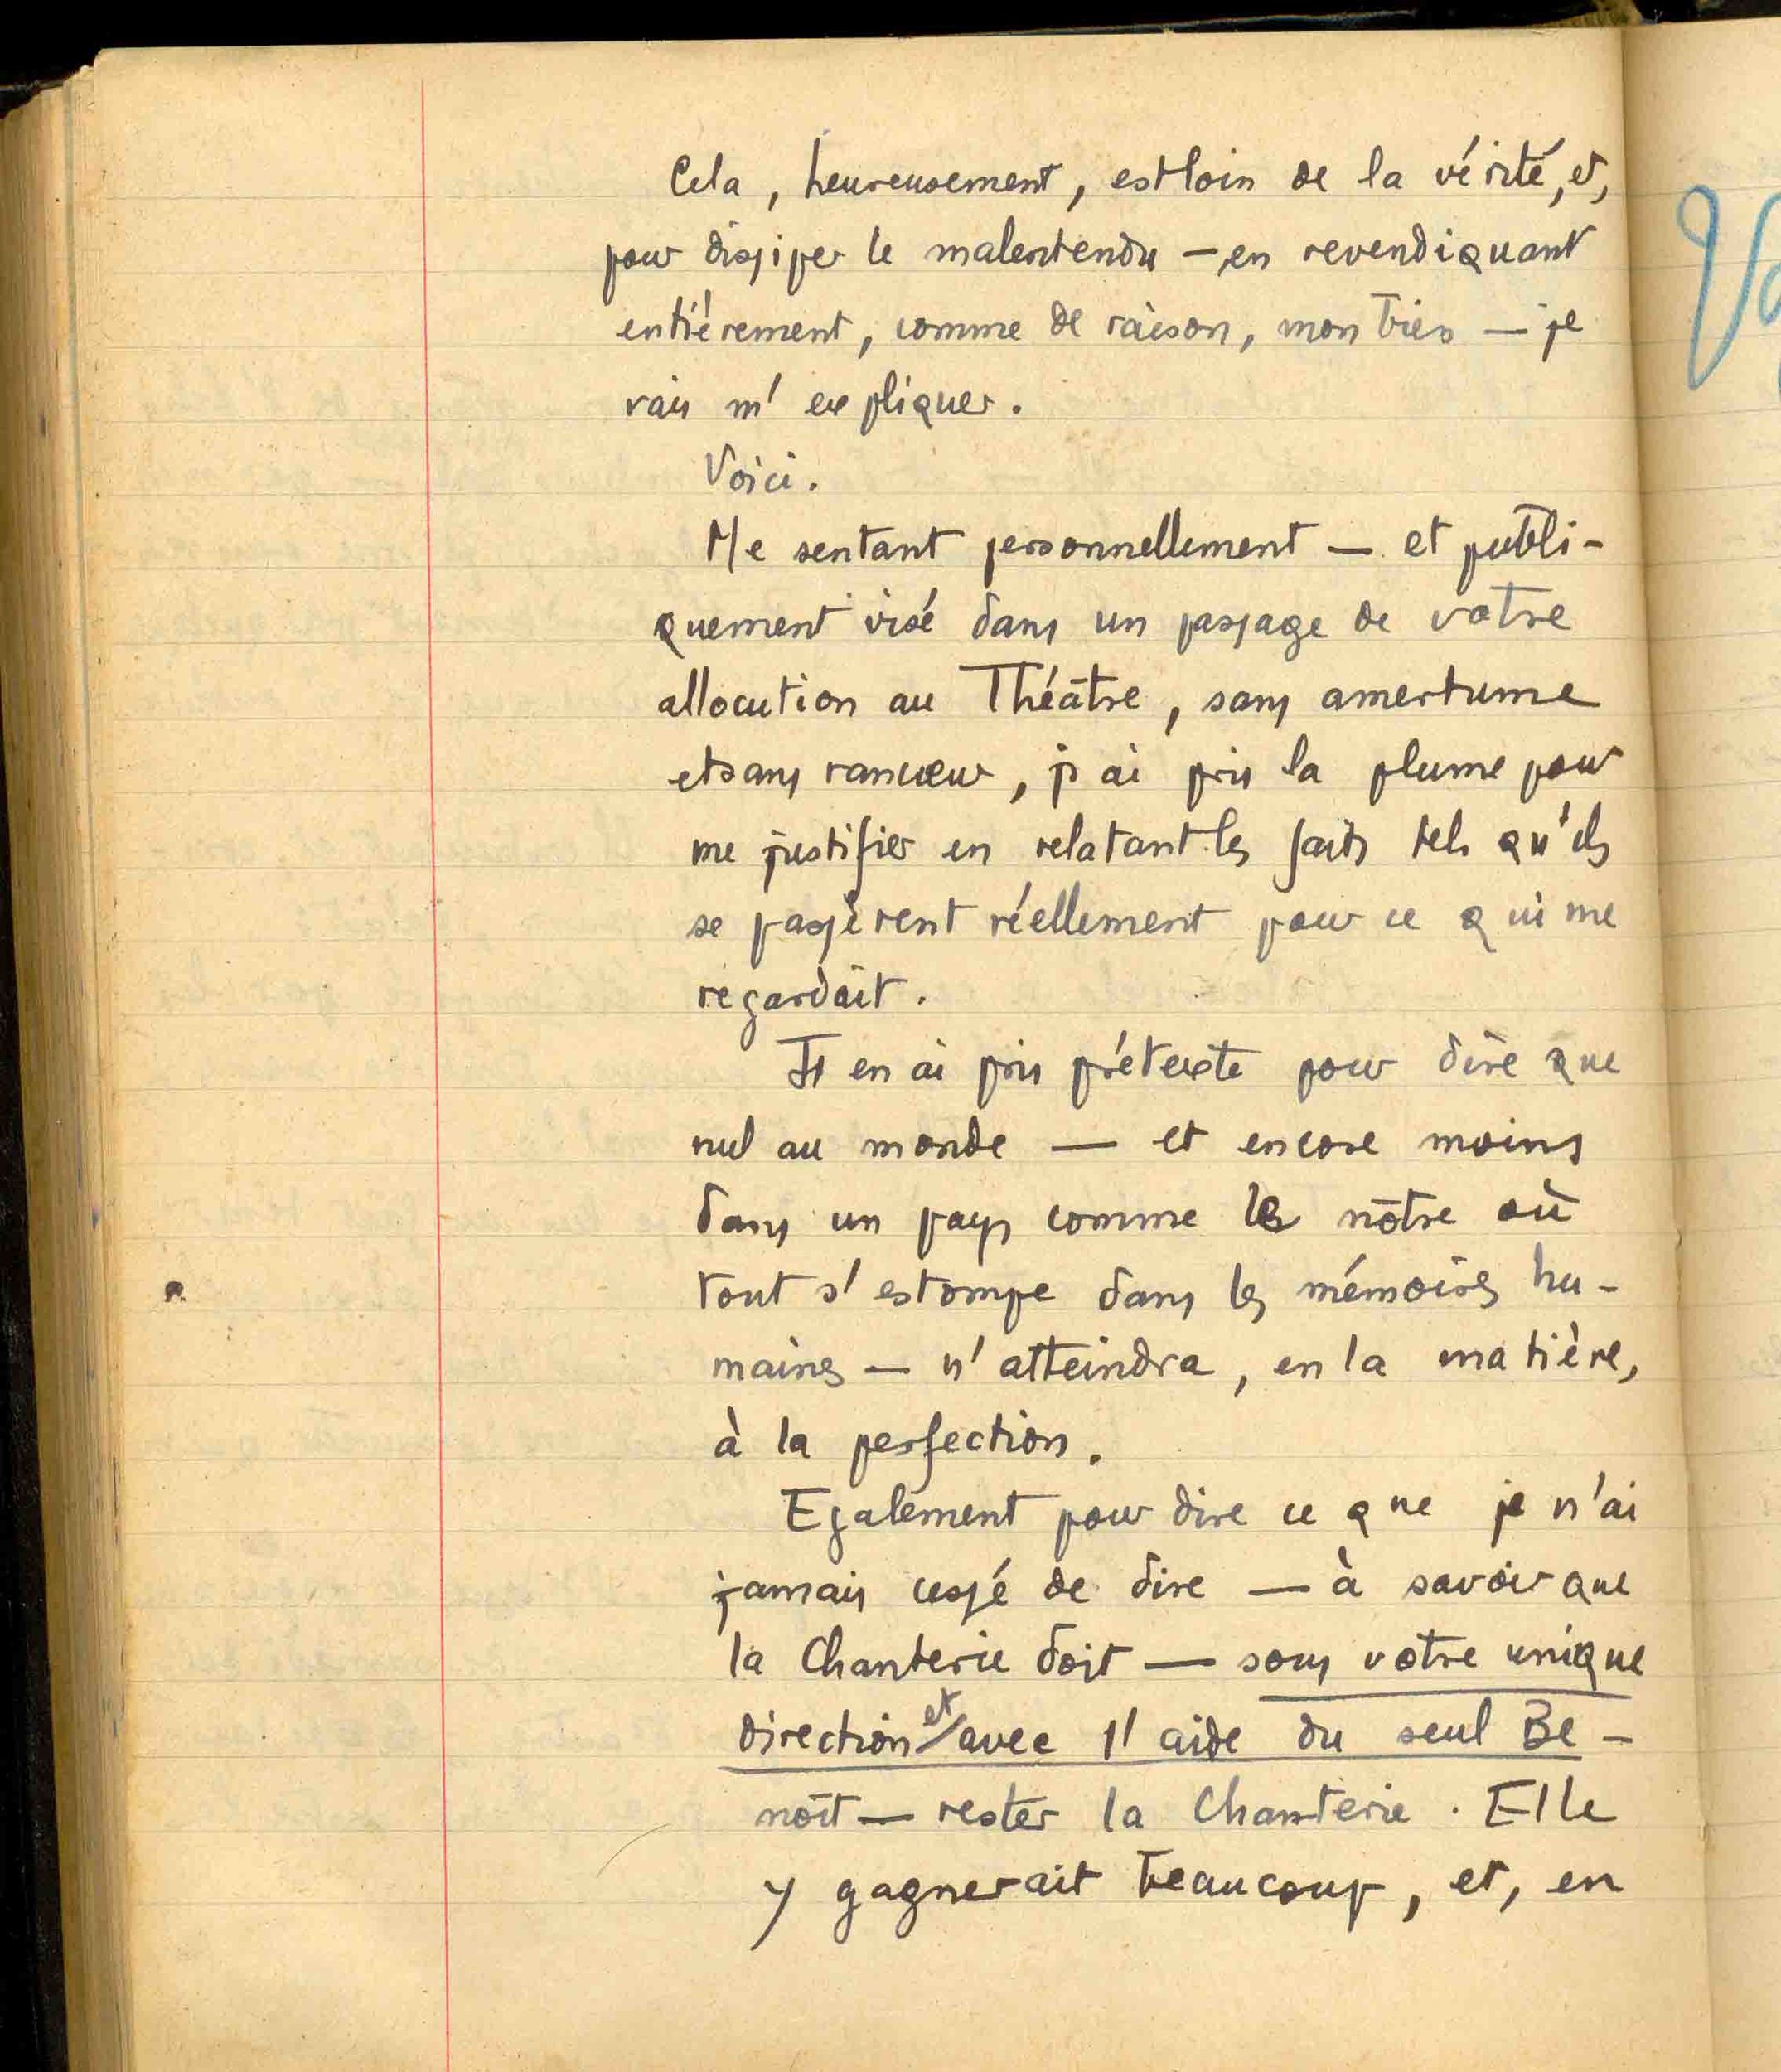 Cela, heureusement, est loin de la vérité, et,
pour dissiper le malentendu — en revendiquant
entièrement, comme de raison, mon bien — je
vais m'expliquer.
Voici.
Me sentant personnellement — et publi-
quement visé dans un passage de votre
allocution au Théâtre, sans amertume
et sans rancœur, j'ai pris la plume pour
me justifier en relatant les faits tels qu'ils
se passèrent réellement pour ce qui me
regardait.
J'en ai pris prétexte pour dire que
nul au monde — et encore moins
dans un pays comme le nôtre où
tout s'estompe dans les mémoires hu-
maines — n'atteindra, en la matière,
à la perfection.
Egalement pour dire ce que je n'ai
jamais cessé de dire — à savoir que
la Chanterie doit — sous votre unique
direction et avec l'aide du seul Be-
noît — rester la Chanterie. Elle
y gagnerait beaucoup, et, en